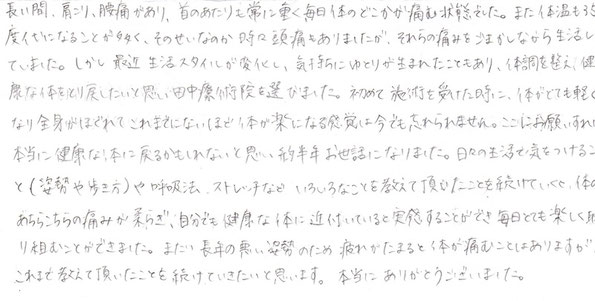 長い間、肩こり、腰痛があり、首のあたりも常に重く毎日体のどこかが痛む状態でした。また体温も35
度代になることが多く、そのせいなのか時々頭痛もありましたが、それらの痛みをごまかしながら生活し
ていました。しかし最近生活スタイルが変化し、気持ちにゆとりが生まれたこともあり、体調を整え健
康な体をとり戻したいと思い田中療術院を選びました。初めて施術を受けた時に、体がとても軽く
なり全身がほどれてこれまでにないほど体が楽になる感覚は今でも忘れられません。ここにお願いすれば
本当に健康な体に戻るかもしれないと思い約半年お世話になりました。日々の生活で気をつけるこ
と（姿勢や歩き方）や呼吸法、ストレッチなどいろいろなことを教えて頂むたことを続けていくと、体の
あちらこちらの痛みが柔らぎ、自分でも健康な体に近付いていると実感することができ毎日とても楽しく取
り組むことができました。まだ長年の悪い姿勢のため疲れがたまると体が痛むことはありますが、
これまで教えて頂いたことを続けていきたいと思います。本当にありがとうございました。